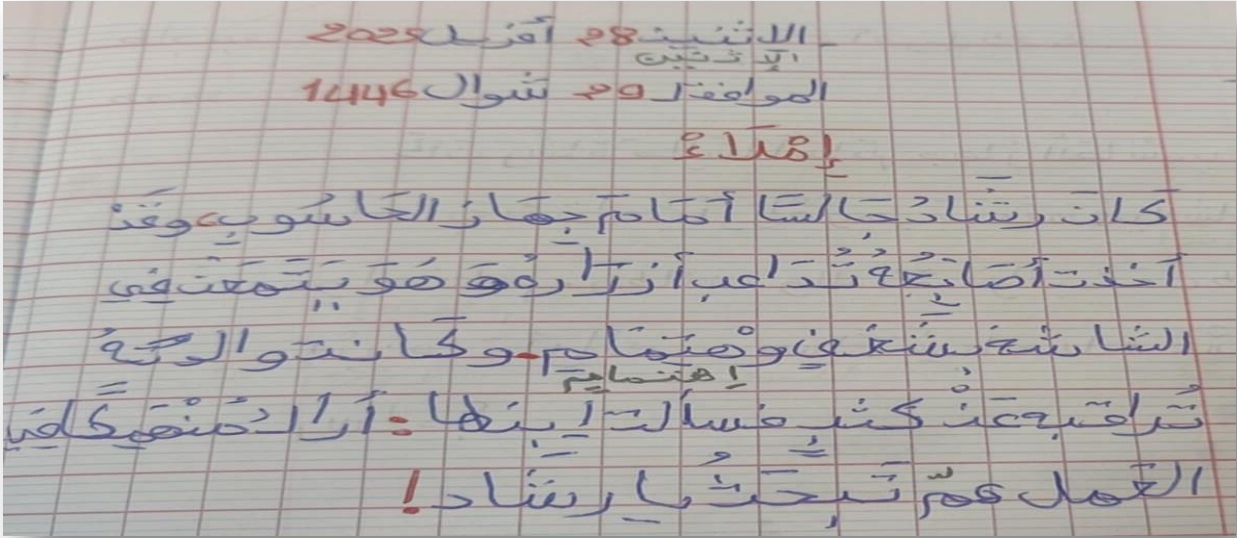 الاثنين 28 أفريل 2025
الإثنين
الموافق لـ 29 شوال 1446
إملاء
كانَ رشَادُ جَالسًا أمَامَ جِهَاز الحَاسُوبِ، وقَدْ
أخذت أصَابعُهُ تُدَاعب أزرَارهُ وَ هُوَ يَتَمَعَّن فِي
الشاشة بشَغَفٍ وهْتِمَامٍ. وكَانت والدتهُ
إهتمامٍ
تُراقبه عَنْ كثب فسألت إبنها: أراك مُنْهَمِكًا في
العَمل عَمّ تَبحَثُ يا رشَاد!